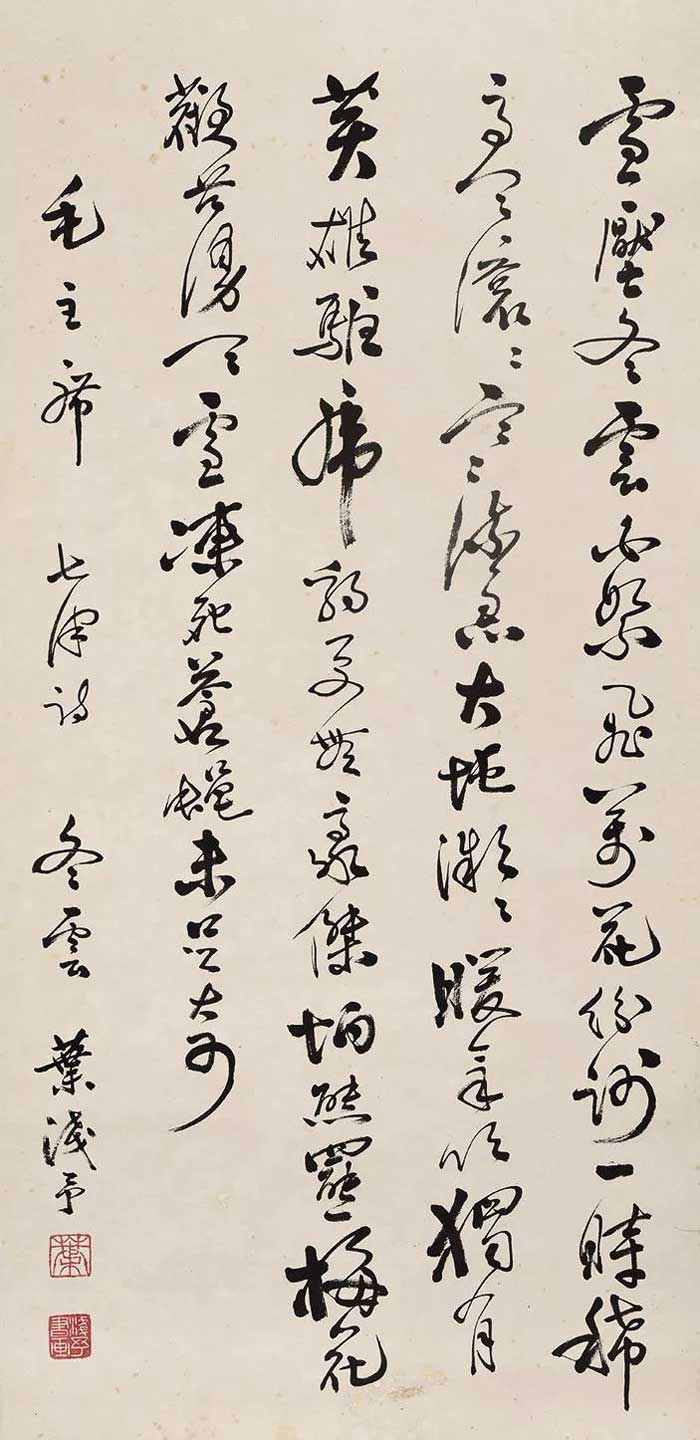 雪壓冬雲白絮飛萬花紛謝一時稀
高天滾〻寒流急大地微〻暖氣吹獨有
英雄驅虎豹更無豪傑怕熊羆梅花
歡喜漫天雪凍死蒼蠅未足奇
毛主席 七律詩 冬雲 葉淺予
葉
淺予書畫